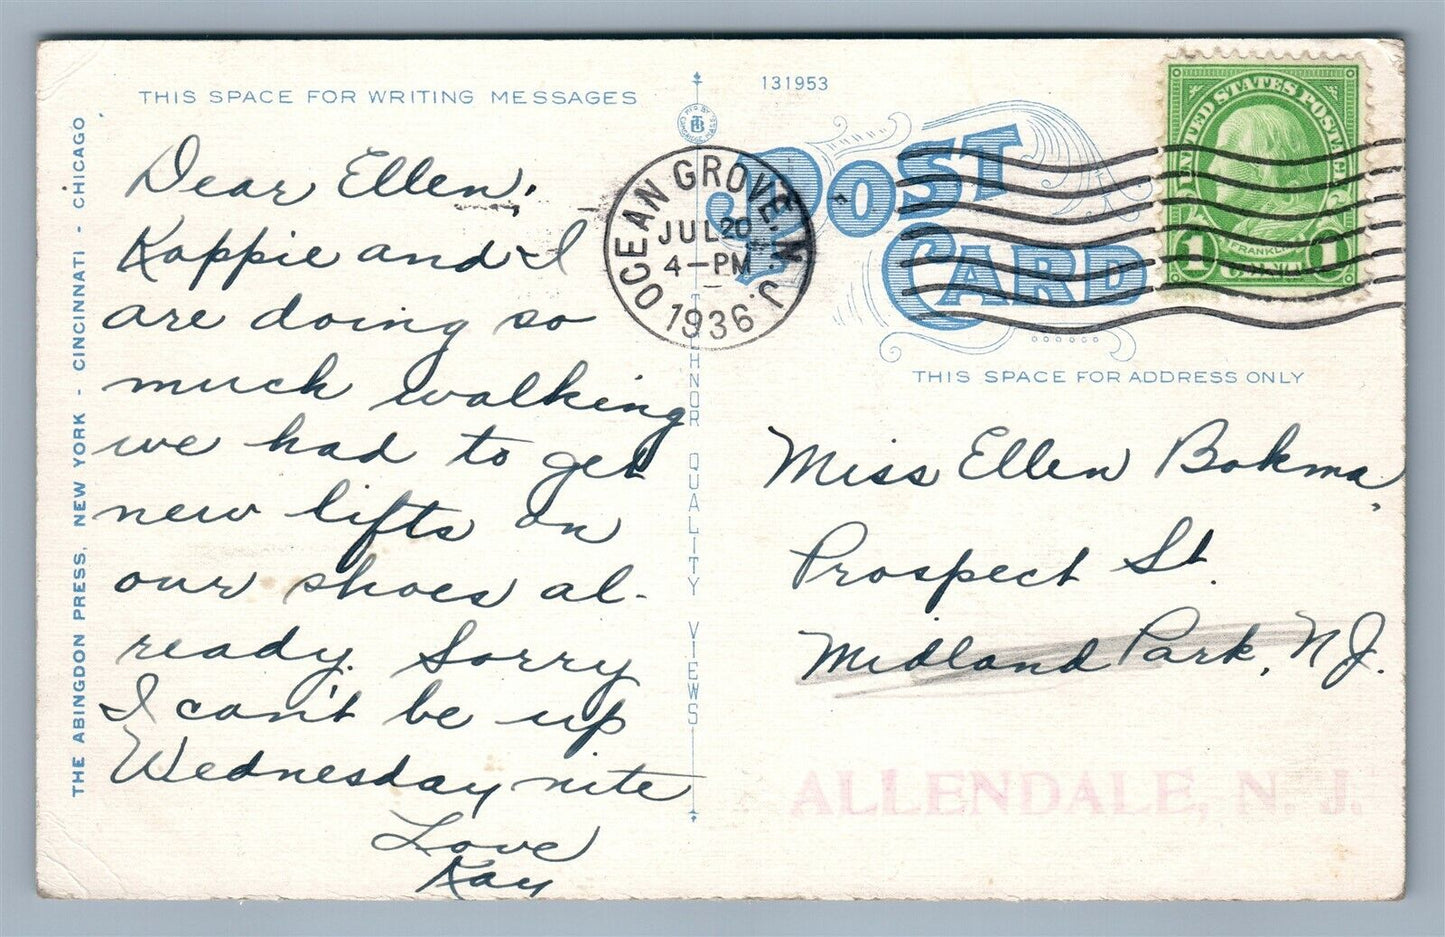 THIS SPACE FOR WRITING MESSAGES
THE ABINGDON PRESS, NEW YORK - CINCINNATI - CHICAGO
Dear Ellen,
Kappie and I
are doing so
much walking
we had to get
new lifts on
our shoes al-
ready. Sorry
I can't be up
Wednesday nite
Love
Kay
TECHNOR QUALITY VIEWS
OCEAN GROVE, N.J.
JUL 20
4-PM
1936
131953
POST
CARD
UNITED STATES POSTAGE
FRANKLIN
1 1
THIS SPACE FOR ADDRESS ONLY
Miss Ellen Bokma,
Prospect St.
Midland Park, N J.
ALLENDALE, N. J.